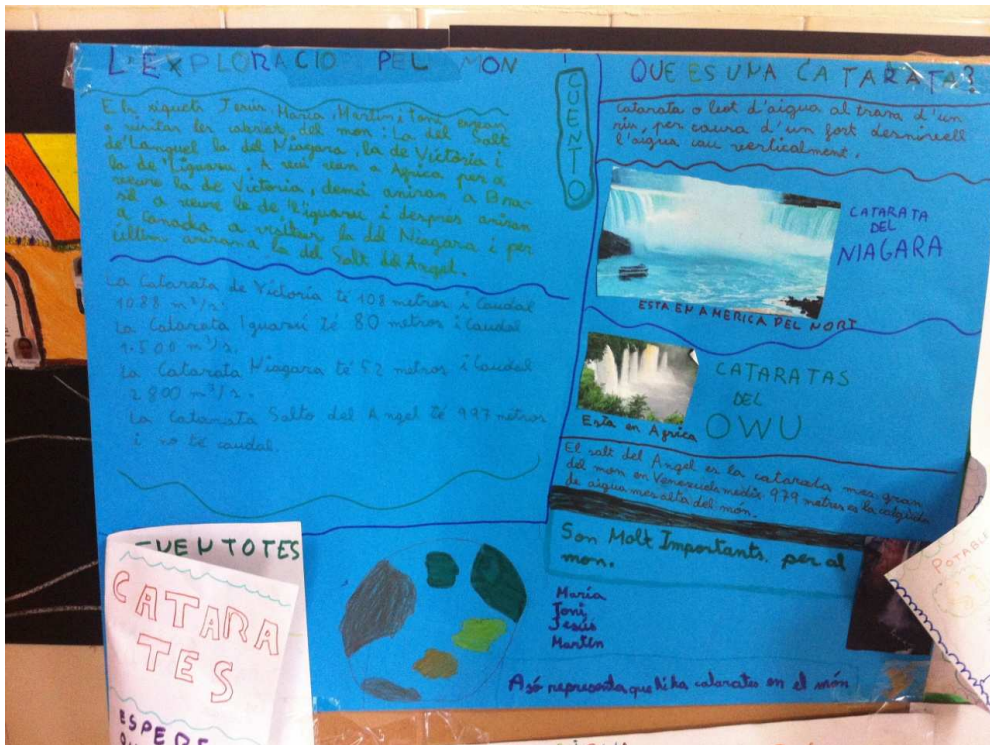 L'EXPLORACIO PEL MON
Els xiquets Jesús, Maria, Martin i Toni
a visitar les del mon: La del Salt
de L'anguel la del Niagara, la de Victòria i
la de l'Iguasu. A Africa per a
veure la de Victoria, demá aniran a Bra-
sil a veure la de l'iguasu i despres aniran
a Canada a visitar la del Niagara i per
últim aniran a la del Salt del Angel.
La Catarata de Victoria té 108 metros i Caudal
1088 m³/s.
La Catarata Iguasú té 80 metros i Caudal
1.500 m³/s.
La Catarata Niagara té 52 metros i Caudal
2800 m³/s.
La Catarata Salto del Angel té 997 metros
i no té caudal.
CUENTO
QUE ES UMA CATARATA?
Catarata o d'aigua al d'un
riu, per causa d'un fort desnivell
l'aigua cau verticalment.
CATARATA
DEL
NIAGARA
ESTA EN AMERICA DEL NORT
CATARATAS
DEL
OWU
Esta en Africa
El salt del Angel es la catarata mes gran
del mon en Venezuela 979 metres es la caiguda
de aigua mes alta del món.
Son Molt Importants. per al
mon.
María
Toni
Jesús
Martín
Asó representa que hi ha catarates en el món
TOTES
CATARA
TES
POTABLE